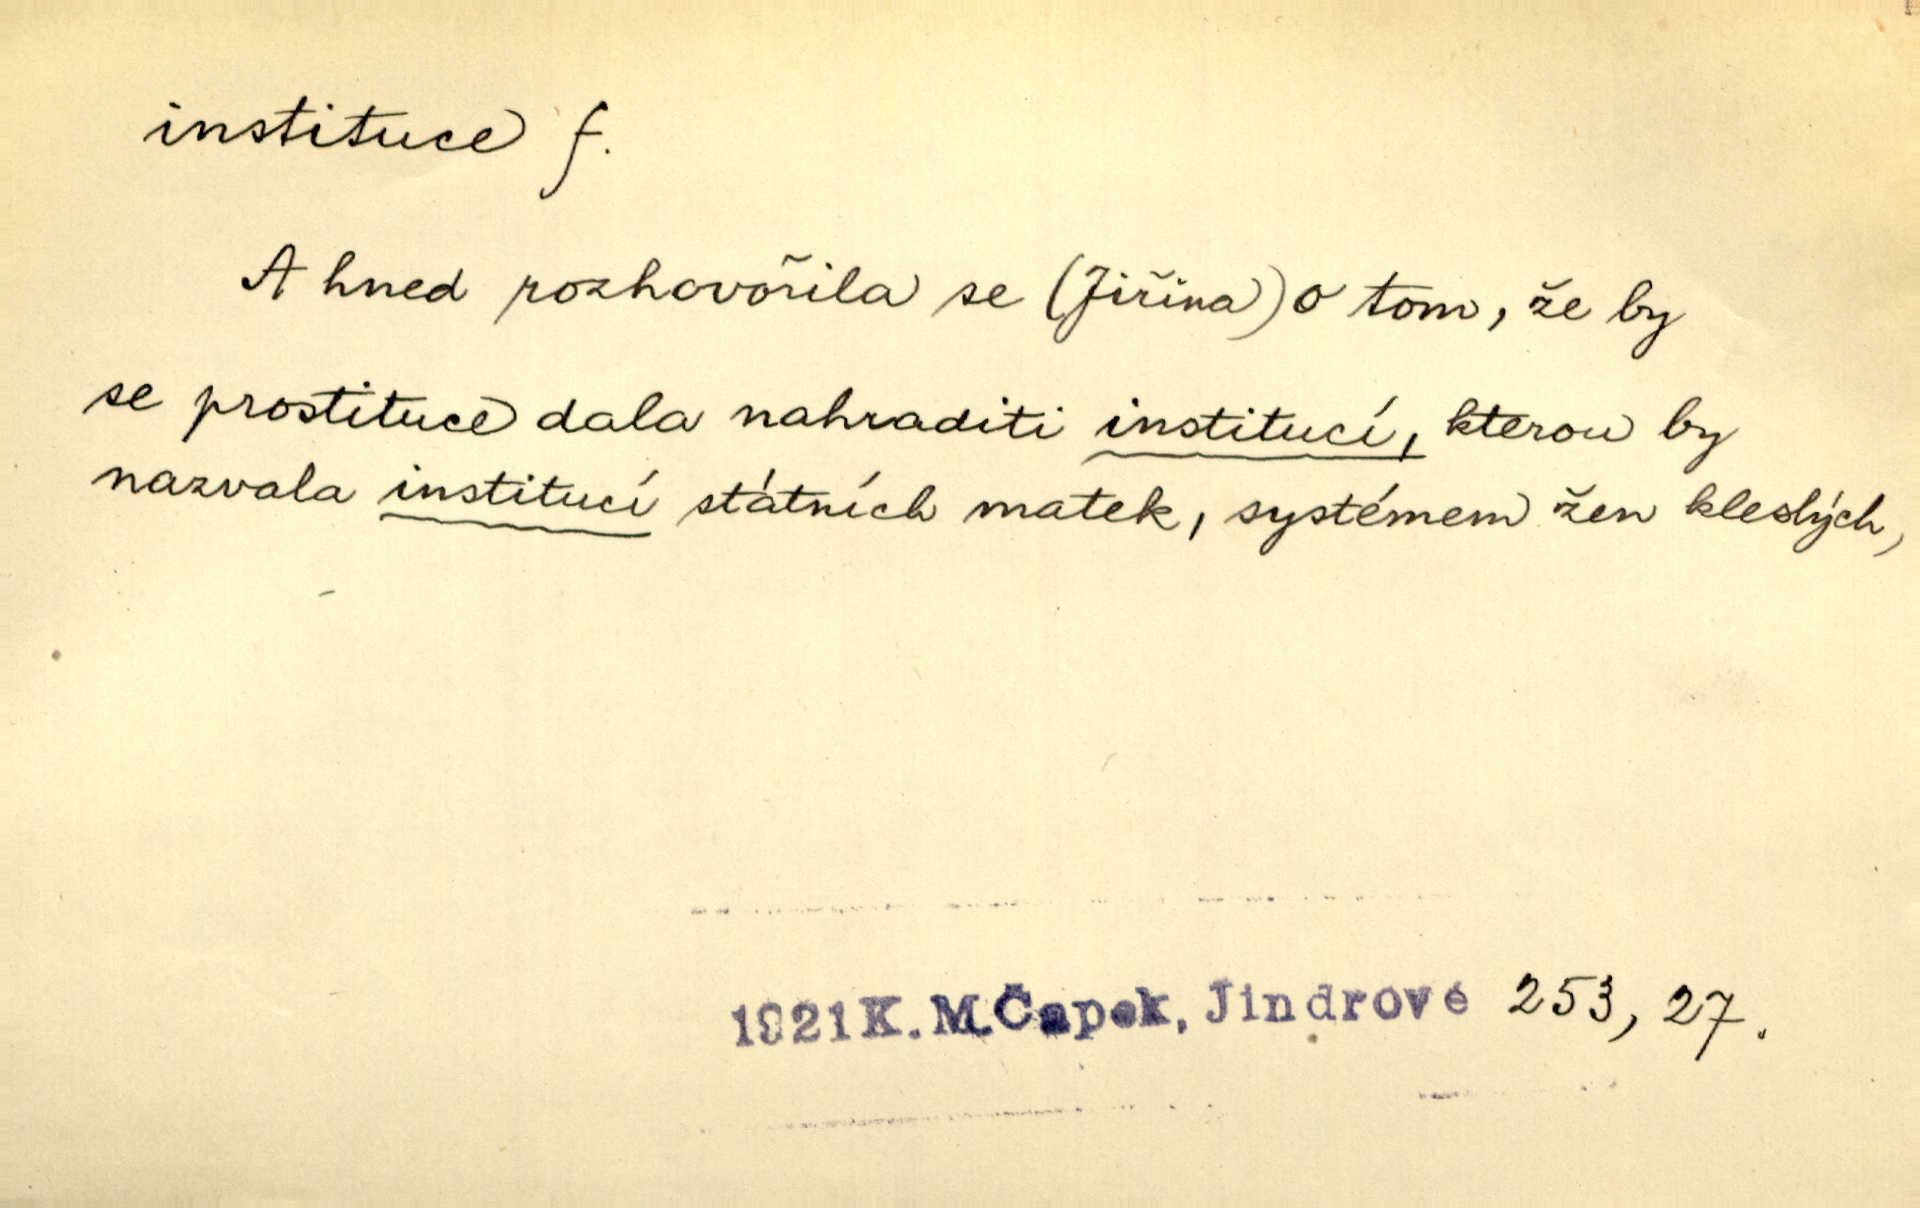 instituce f.
A hned rozhovořila se (Jiřina) o tom, že by
se prostituce dala nahraditi institucí, kterou by
nazvala institucí státních matek, systémem žen kleslých,
1921 K. M. Čapek, Jindrové 253, 27.